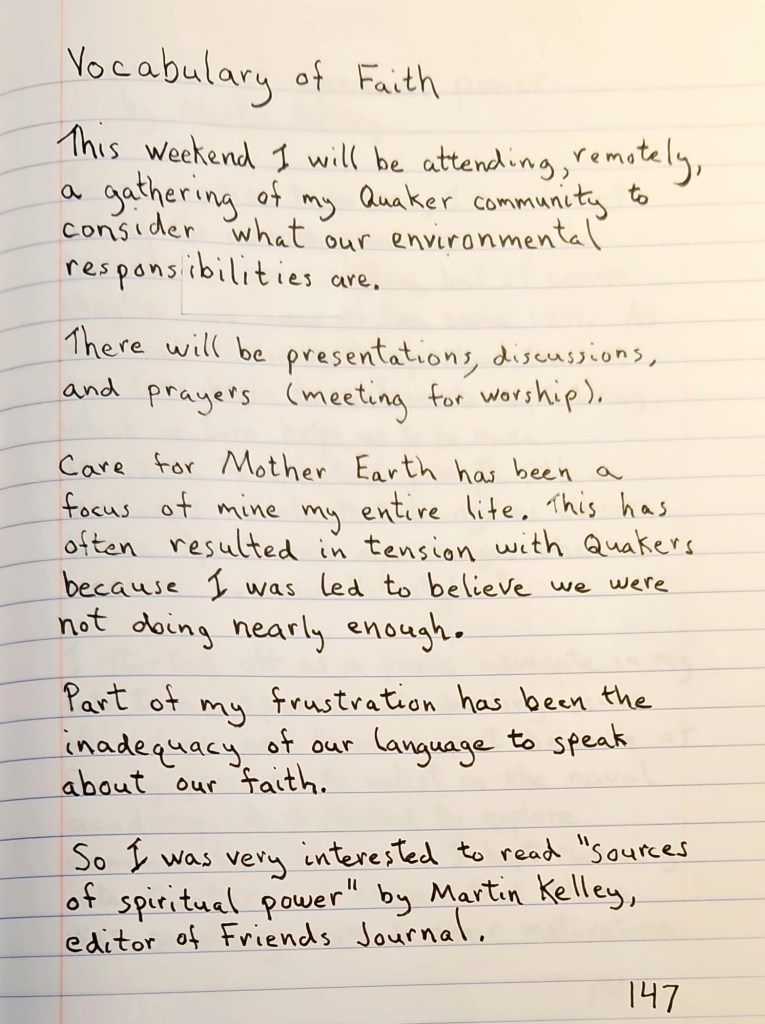 Vocabulary of Faith
This weekend I will be attending, remotely,
a gathering of my Quaker community to
consider what our environmental
responsibilities are.
There will be presentations, discussions,
and prayers (meeting for worship).
Care for Mother Earth has been a
focus of mine my entire life. This has
often resulted in tension with Quakers
because I was led to believe we were
not doing nearly enough.
Part of my frustration has been the
inadequacy of our language to speak
about our faith.
So I was very interested to read "sources
of spiritual power" by Martin Kelley,
editor of Friends Journal.
147